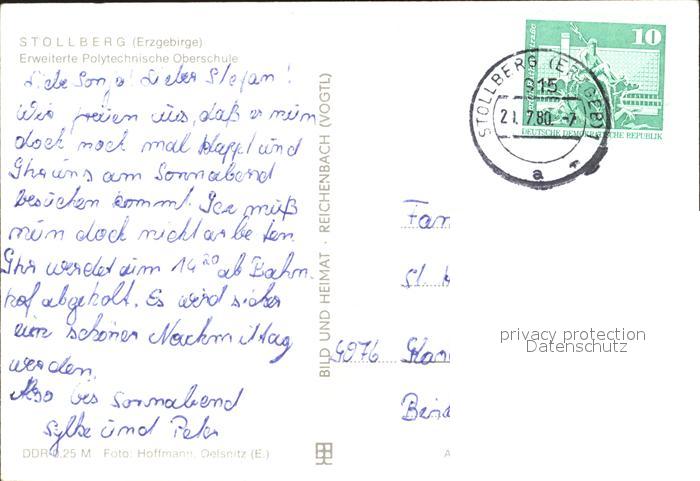 STOLLBERG (Erzgebirge)
Erweiterte Polytechnische Oberschule
Liebe Sonja! Lieber Stefan!
Wir freuen uns, daß es nun
doch noch mal klappt und
Ihr uns am Sonnabend
besuchen kommt. Ice muß
nun doch nicht arbeiten.
Ihr werdet um 14²⁰ ab Bahn-
hof abgeholt. Es wird sicher
ein schöner Nachmittag
werden.
Also bis Sonnabend
Sylke und Peter
DDR 0,25 M Foto: Hoffmann, Oelsnitz (E.)
BILD UND HEIMAT · REICHENBACH (VOGTL)
10
DEUTSCHE DEMOKRATISCHE REPUBLIK
STOLLBERG (ERZGEB) 1
915
21.7.80.-7
a
Fam
privacy protection
Datenschutz
A